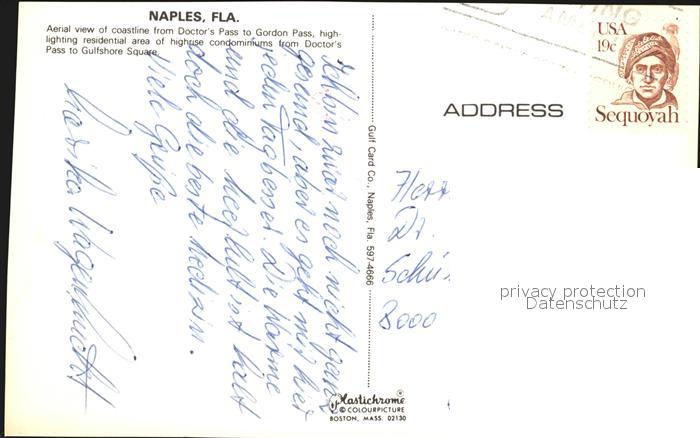 NAPLES, FLA.
Aerial view of coastline from Doctor's Pass to Gordon Pass, high-
lighting residential area of highrise condominiums from Doctor's
Pass to Gulfshore Square.
Ich bin zwar noch nicht ganz
gesund, aber es geht mir hier
jeden Tag besser. Die Wärme
und die Meerluft ist halt
doch die beste Medizin.
Viele Grüße
Gulf Card Co., Naples, Fla. 597-4666
Plastichrome®
© COLOURPICTURE
BOSTON, MASS. 02130
USA
19c
Sequoyah
ADDRESS
Herr
Dr.
Schü
8000
privacy protection
Datenschutz